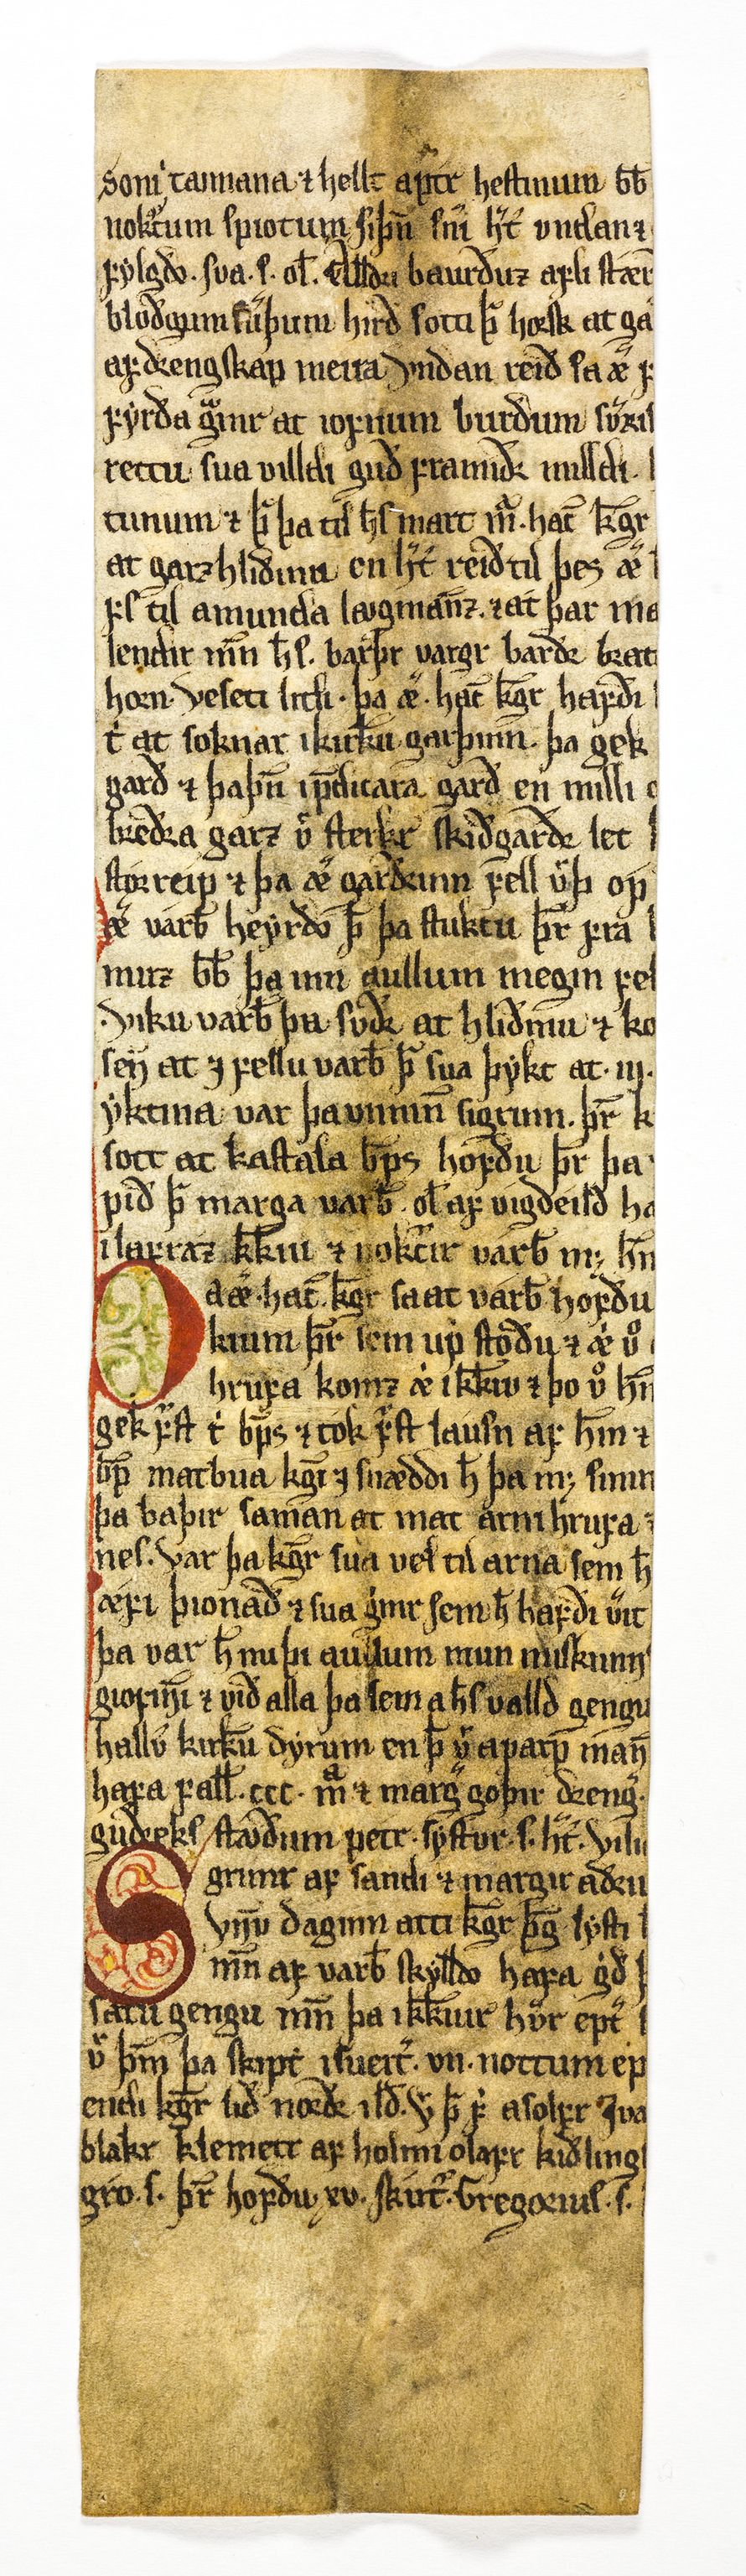 soni tannana ⁊ hellt aptr hestinum bb
nokꝛum spiotum siþn̄ sn̄i ht̄ vndan ⁊
fylgdo. sva. s. ol̄. baurduz afli stær
blodgum suþum hird sotti þ̄ hoꝛsk at ga
af dꝛengskap meira Vndan reid sa æ f
fyrda gͣmr at iofnum burdum sv̄ꝛis
rettu sua villdi gud framidꝛ milldi.
tunum ⁊ þ̄ þa til h̄s mart m̄. hat̄ kḡr
at garz hlidinu en ht̄ reid til þes æ
fs̄ til amunda lagmanz. ⁊ at þar ma
lendir mn̄ h̄ s. barþr vargr bardꝛ bꝛat
hoꝛn. Veseti litli. þa æ. hat̄ kḡr hafdi
t̄ at soknar i kirkiu garþinn. þa gek
gard ⁊ þaþn̄ i p̄dicara gard en milli
bꝛedꝛa garz v̄ sterkr skidgardꝛ let
stoꝛ reip ⁊ þa æ gardꝛinn fell v̄þ op
æ varb̄ heyrdo þ̄ þa stuktu þr̄ fra
muz bb þa inn aullum megin fel
Viku varb̄ þa sudꝛ at hlidinu ⁊ ko
sen at ⁊ fellu varb̄ þ̄ sua þykt at. iii.
yktina var þa vnnin sigrum. þr̄ k
sott at kastala b̄ps hofdu þr̄ þa
pid þ̄ marga varb̄. ol̄ af vigdeild ha
i lafraz kk̄iu ⁊ nokꝛir varb̄ m; h̄n
a æ. hat̄. kḡr sa at varb̄ hofdu
kium þr̄ sem up stodu ⁊ æ v̊
hrufa komz æ i kk̄iu ⁊ þo v̊ h̄n
gek fẏst t̄ b̄ps ⁊ tok fẏst lausn af h̄m ⁊
b̄p matbua kḡi ⁊ snæddi h̄ þa m; sinn
þa baþir saman at mat arni hrufa ⁊
nes. Var þa kḡr sua vel til arna sem h̄
æfi þionad ⁊ sua gͥmr sem h̄ hafdi v̄it
þa var h̄ nu þi aullum mun miskunn
giofini ⁊ vid alla þa sem a h̄s valld gengu
hallv̄ kirkiu dyrum en þ̄ v̄ a parp mann
hafa fall̄. ccc. mͣ ⁊ marg̈ goþir dꝛeng̈.
gudꝛeks stædum petr. systur. s. ht̄. vilii
grimr af sandi ⁊ margir adꝛir
Vnnv daginn atti kḡr þ̄g lysti
mn̄ af varb̄ skylldo hafa gͥd
satu gengu mn̄ þa i kk̄iur hv̄r ept̄
v̄ þm̄ þa skipt i sueit̄. vii. nottum ep
endi kḡr lid noꝛdꝛ i ld̄. v̄ þ̄ f̄ asolfr Jva
blakr klemett af holmi olafr kidling
gro. s. þr̄ hofdu xv. skut̄. Gregoꝛius. s.